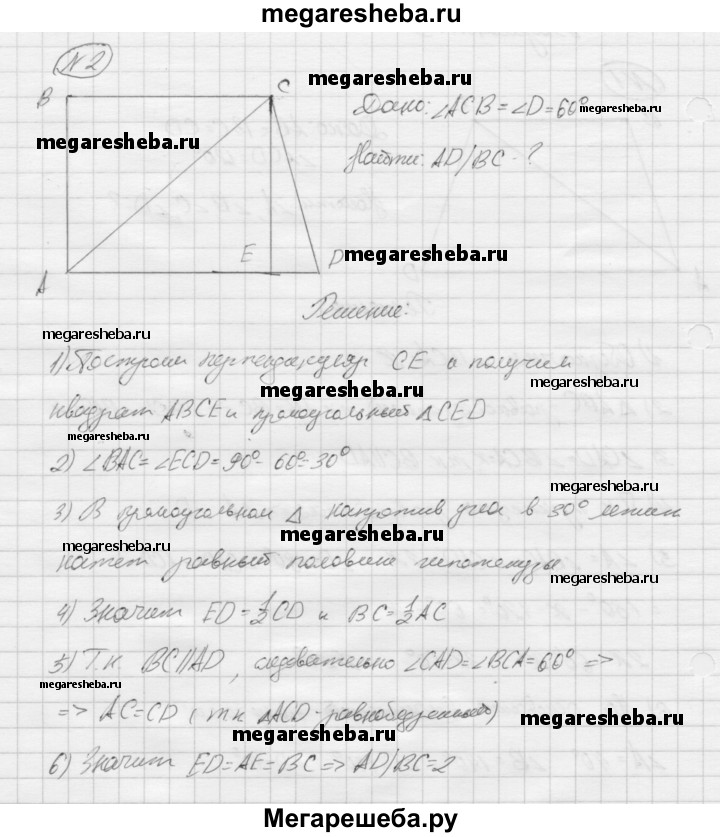 megaresheba.ru
N2
B
C
megaresheba.ru
Дано: ∠ACB = ∠D = 60°
megaresheba.ru
megaresheba.ru
Найти: AD/BC - ?
E
D
megaresheba.ru
A
Решение:
megaresheba.ru
1) Построим перпендикуляр CE и получим
megaresheba.ru
megaresheba.ru
квадрат ABCE и прямоугольный △CED
megaresheba.ru
2) ∠BAC = ∠ECD = 90° - 60° = 30°
megaresheba.ru
3) В прямоугольном △ напротив угла в 30° лежит
megaresheba.ru
megaresheba.ru
катет равный половине гипотенузы
megaresheba.ru
4) Значит ED = 1/2 CD и BC = 1/2 AC
5) Т.к. BC||AD, следовательно ∠CAD = ∠BCA = 60° =>
megaresheba.ru
=> AC = CD (т.к. △ACD - равнобедренный)
megaresheba.ru
megaresheba.ru
6) Значит ED = AE = BC => AD/BC = 2
megaresheba.ru
Мегарешеба.ру